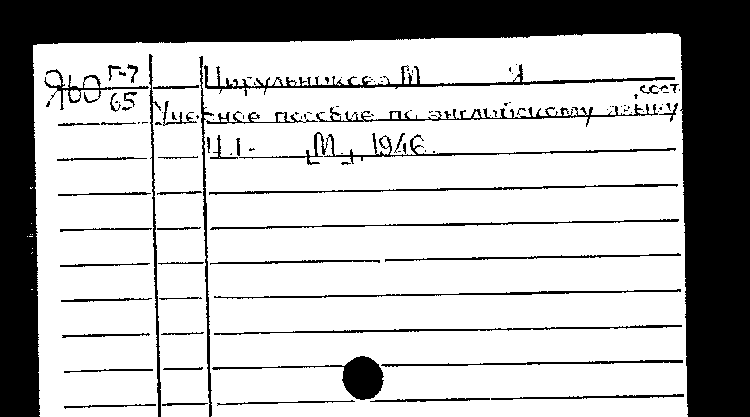 Я60 Г-7
65
Цирульникова, М Я
, сост.
Учебное пособие по английскому языку
Ч.1- [М.], 1946.